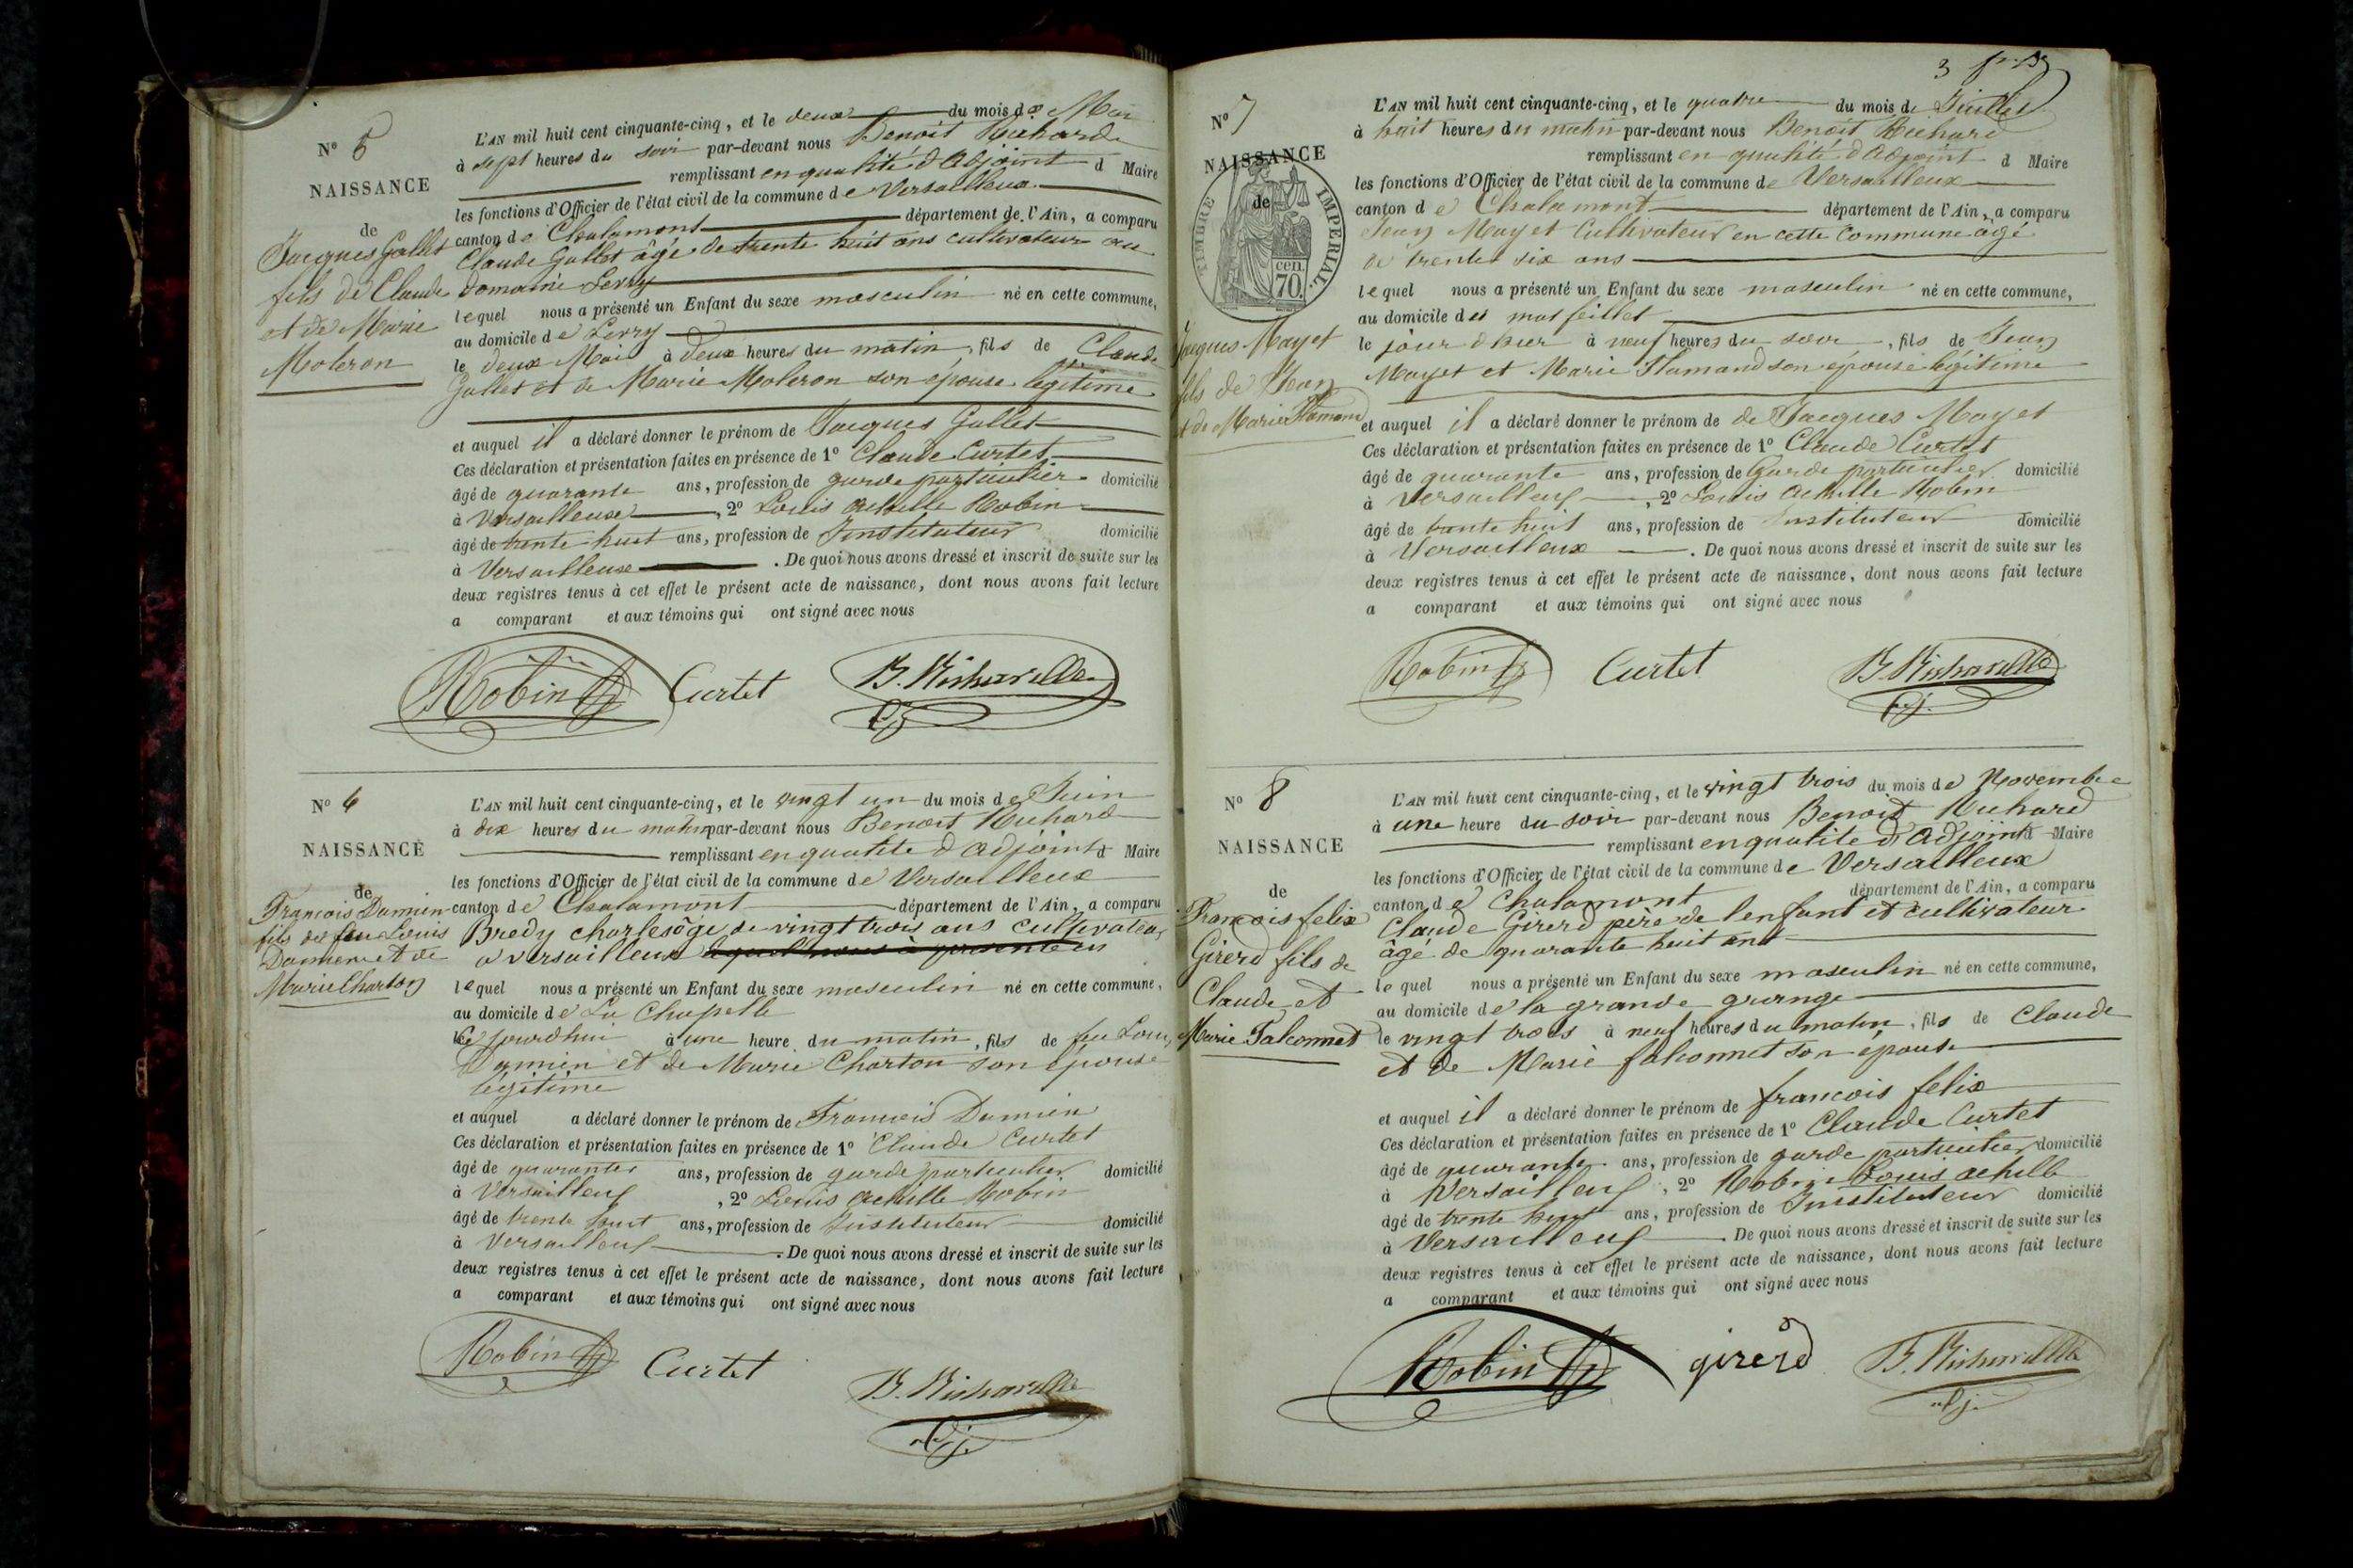 N° 5
NAISSANCE
de
Jacques Gallet
fils de Claude
et de Marie
Moleron
L'AN mil huit cent cinquante-cinq, et le deux du mois de Mai
à sept heures du soir par-devant nous Benoit Richard
remplissant en qualité d'adjoint d Maire
les fonctions d'Officier de l'état civil de la commune de Versailleux
canton de Chalamont département de l'Ain, a comparu
Claude Gallet âgé de trente huit ans cultivateur au
domaine
lequel nous a présenté un Enfant du sexe masculin né en cette commune,
au domicile de
le deux Mai à deux heures du matin, fils de Claude
Gallet et de Marie Moleron son épouse légitime
et auquel il a déclaré donner le prénom de Jacques Gallet
Ces déclaration et présentation faites en présence de 1° Claude Curtet
âgé de quarante ans, profession de garde particulier domicilié
à Versailleux, 2° Louis Achille Robin
âgé de trente huit ans, profession de Instituteur domicilié
à Versailleux. De quoi nous avons dressé et inscrit de suite sur les
deux registres tenus à cet effet le présent acte de naissance, dont nous avons fait lecture
a comparant et aux témoins qui ont signé avec nous
Robin Curtet B. Richard
adj.
N° 6
NAISSANCE
de
François Damien
fils de feu Louis
Damien et de
Marie Charton
L'AN mil huit cent cinquante-cinq, et le vingt un du mois de Juin
à dix heures du matin par-devant nous Benoit Richard
remplissant en qualité d'adjoint d Maire
les fonctions d'Officier de l'état civil de la commune de Versailleux
canton de Chalamont département de l'Ain, a comparu
Bredy charles âgé de vingt trois ans cultivateur
a versailleux
lequel nous a présenté un Enfant du sexe masculin né en cette commune,
au domicile de La Chapelle
le jourdhui à une heure du matin, fils de feu Louis
Damien et de Marie Charton son épouse
légitime
et auquel a déclaré donner le prénom de François Damien
Ces déclaration et présentation faites en présence de 1° Claude Curtet
âgé de quarante ans, profession de garde particulier domicilié
à Versailleux, 2° Louis Achille Robin
âgé de trente huit ans, profession de Instituteur domicilié
à Versailleux. De quoi nous avons dressé et inscrit de suite sur les
deux registres tenus à cet effet le présent acte de naissance, dont nous avons fait lecture
a comparant et aux témoins qui ont signé avec nous
Robin Curtet B. Richard
adj.
3
N° 7
NAISSANCE
de
TIMBRE IMPERIAL.
cen.
70.
Jacques Mayet
fils de Jean
et de Marie Flamand
L'AN mil huit cent cinquante-cinq, et le quatre du mois de Juillet
à huit heures du matin par-devant nous Benoit Richard
remplissant en qualité d'adjoint d Maire
les fonctions d'Officier de l'état civil de la commune de Versailleux
canton de Chalamont département de l'Ain, a comparu
Jean Mayet Cultivateur en cette commune âgé
de trente six ans
lequel nous a présenté un Enfant du sexe masculin né en cette commune,
au domicile de mas feillet
le jour d'hier à neuf heures du soir, fils de Jean
Mayet et Marie Flamand son épouse légitime
et auquel il a déclaré donner le prénom de de Jacques Mayet
Ces déclaration et présentation faites en présence de 1° Claude Curtet
âgé de quarante ans, profession de Garde particulier domicilié
à Versailleux, 2° Louis Achille Robin
âgé de trente huit ans, profession de Instituteur domicilié
à Versailleux. De quoi nous avons dressé et inscrit de suite sur les
deux registres tenus à cet effet le présent acte de naissance, dont nous avons fait lecture
a comparant et aux témoins qui ont signé avec nous
Robin Curtet B. Richard
adj.
N° 8
NAISSANCE
de
François felix
Girerd fils de
Claude et
Marie Falconnet
L'AN mil huit cent cinquante-cinq, et le vingt trois du mois de Novembre
à une heure du soir par-devant nous Benoit Richard
remplissant en qualité d'Adjoint Maire
les fonctions d'Officier de l'état civil de la commune de Versailleux
canton de Chalamont département de l'Ain, a comparu
Claude Girerd père de l'enfant et cultivateur
âgé de quarante huit ans
lequel nous a présenté un Enfant du sexe masculin né en cette commune,
au domicile de la grande grange
le vingt trois à neuf heures du matin, fils de Claude
et de Marie falconnet son épouse
et auquel il a déclaré donner le prénom de francois felix
Ces déclaration et présentation faites en présence de 1° Claude Curtet
âgé de quarante ans, profession de garde particulier domicilié
à Versailleux, 2° Robin Louis achille
âgé de trente huit ans, profession de Instituteur domicilié
à Versailleux. De quoi nous avons dressé et inscrit de suite sur les
deux registres tenus à cet effet le présent acte de naissance, dont nous avons fait lecture
a comparant et aux témoins qui ont signé avec nous
Robin girerd B. Richard
adj.